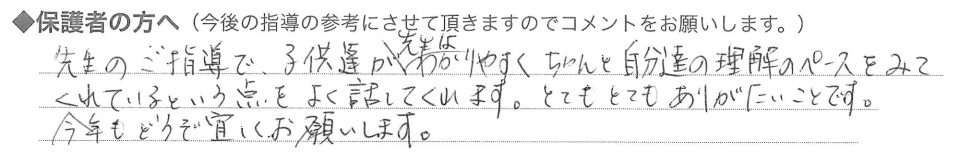 ◆保護者の方へ（今後の指導の参考にさせて頂きますのでコメントをお願いします。）
先生のご指導で、子供達が先生はわかりやすく ちゃんと自分達の理解のペースをみて
くれているという点を よく話してくれます。とてもとても ありがたいことです。
今年もどうぞ宜しくお願いします。